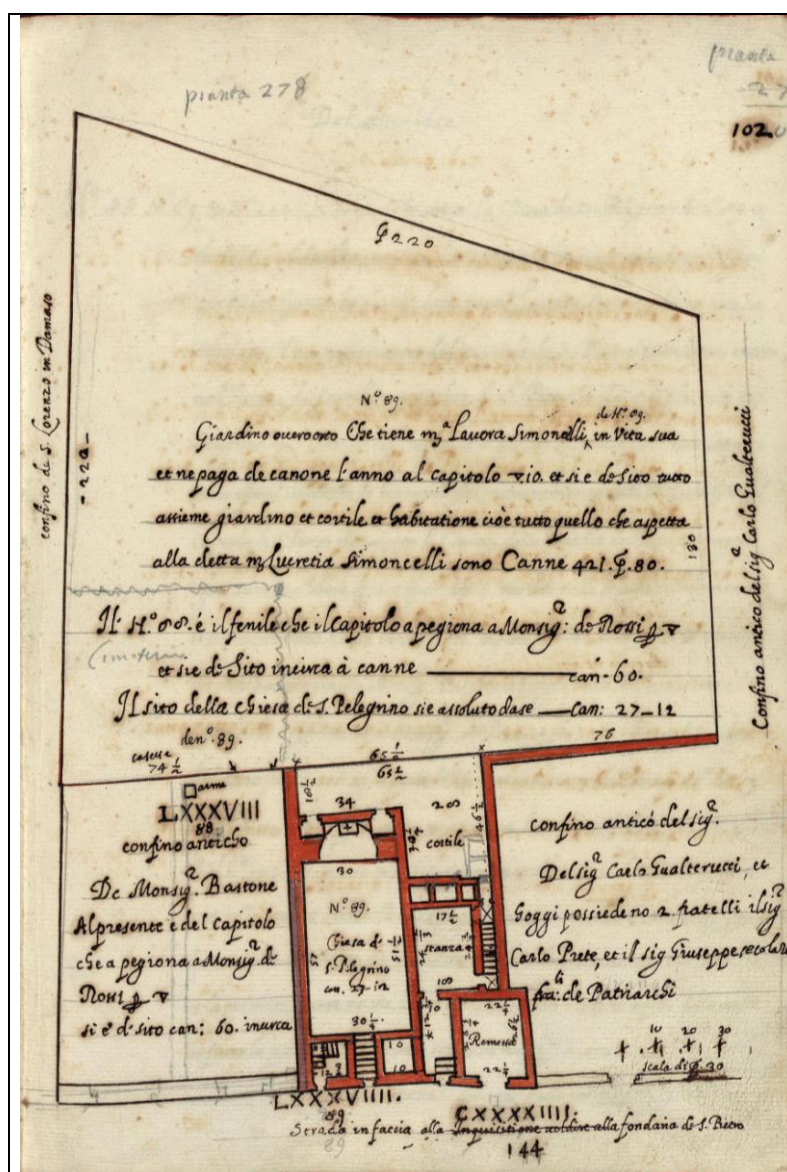 pianta 278
pianta
27
102
₽ 220
confino de S. Lorenzo in Damaso
- 220 -
N.º 89.
de Nº. 89.
Giardino overo orto Che tiene m.ª Lavora Simoncelli, in Vita sua
et ne paga de canone l'anno al capitolo ▽ 10. et si e de Sito tutto
assieme giardino et cortile et habitatione cioè tutto quello che aspetta
alla detta m.ª Lucretia Simoncelli sono Canne 421. ₽. 80.
180
Confino antico del sig.ʳ Carlo Gualterucci
Il Nº. 88. é il fenile che il Capitolo apegiona a Monsig.ʳ: de Rossi p ▽
et si e de Sito incirca à canne ——— can. 60.
Il sito della chiesa de S. Pelegrino si e assoluto da se — Can: 27_12
de nº. 89.
74 ½
65 ½
65 ½
76
arme
LXXXVIII
88
confino anticho
De Monsig.ʳ Bastone
Al presente è del Capitolo
che a pegiona a Monsig.ʳ de
Rossi p ▽
si e de sito can: 60. incirca
10 ½
34
28
46 ½
cortile
30
Nº 89.
Chiesa de
S. Pelegrino
can. 27-12
57
30 ¼
17 ½
stanza
18
22
Remessa
26 ½
22 ½
10
10
12
confino anticó del sig.ʳ
Del sig.ʳ Carlo Gualterucci, et
hoggi possiedeno 2. fratelli il sig.ʳ
Carlo Prete, et il sig Giuseppe secolare
fra.ˡⁱ de Patriarchi
10 20 30
scala di ₽. 30
LXXXVIIII.
89
CXXXXIIII.
Strada in faccia alla Inquisitione alla fondaria de S. Pietro
89
144